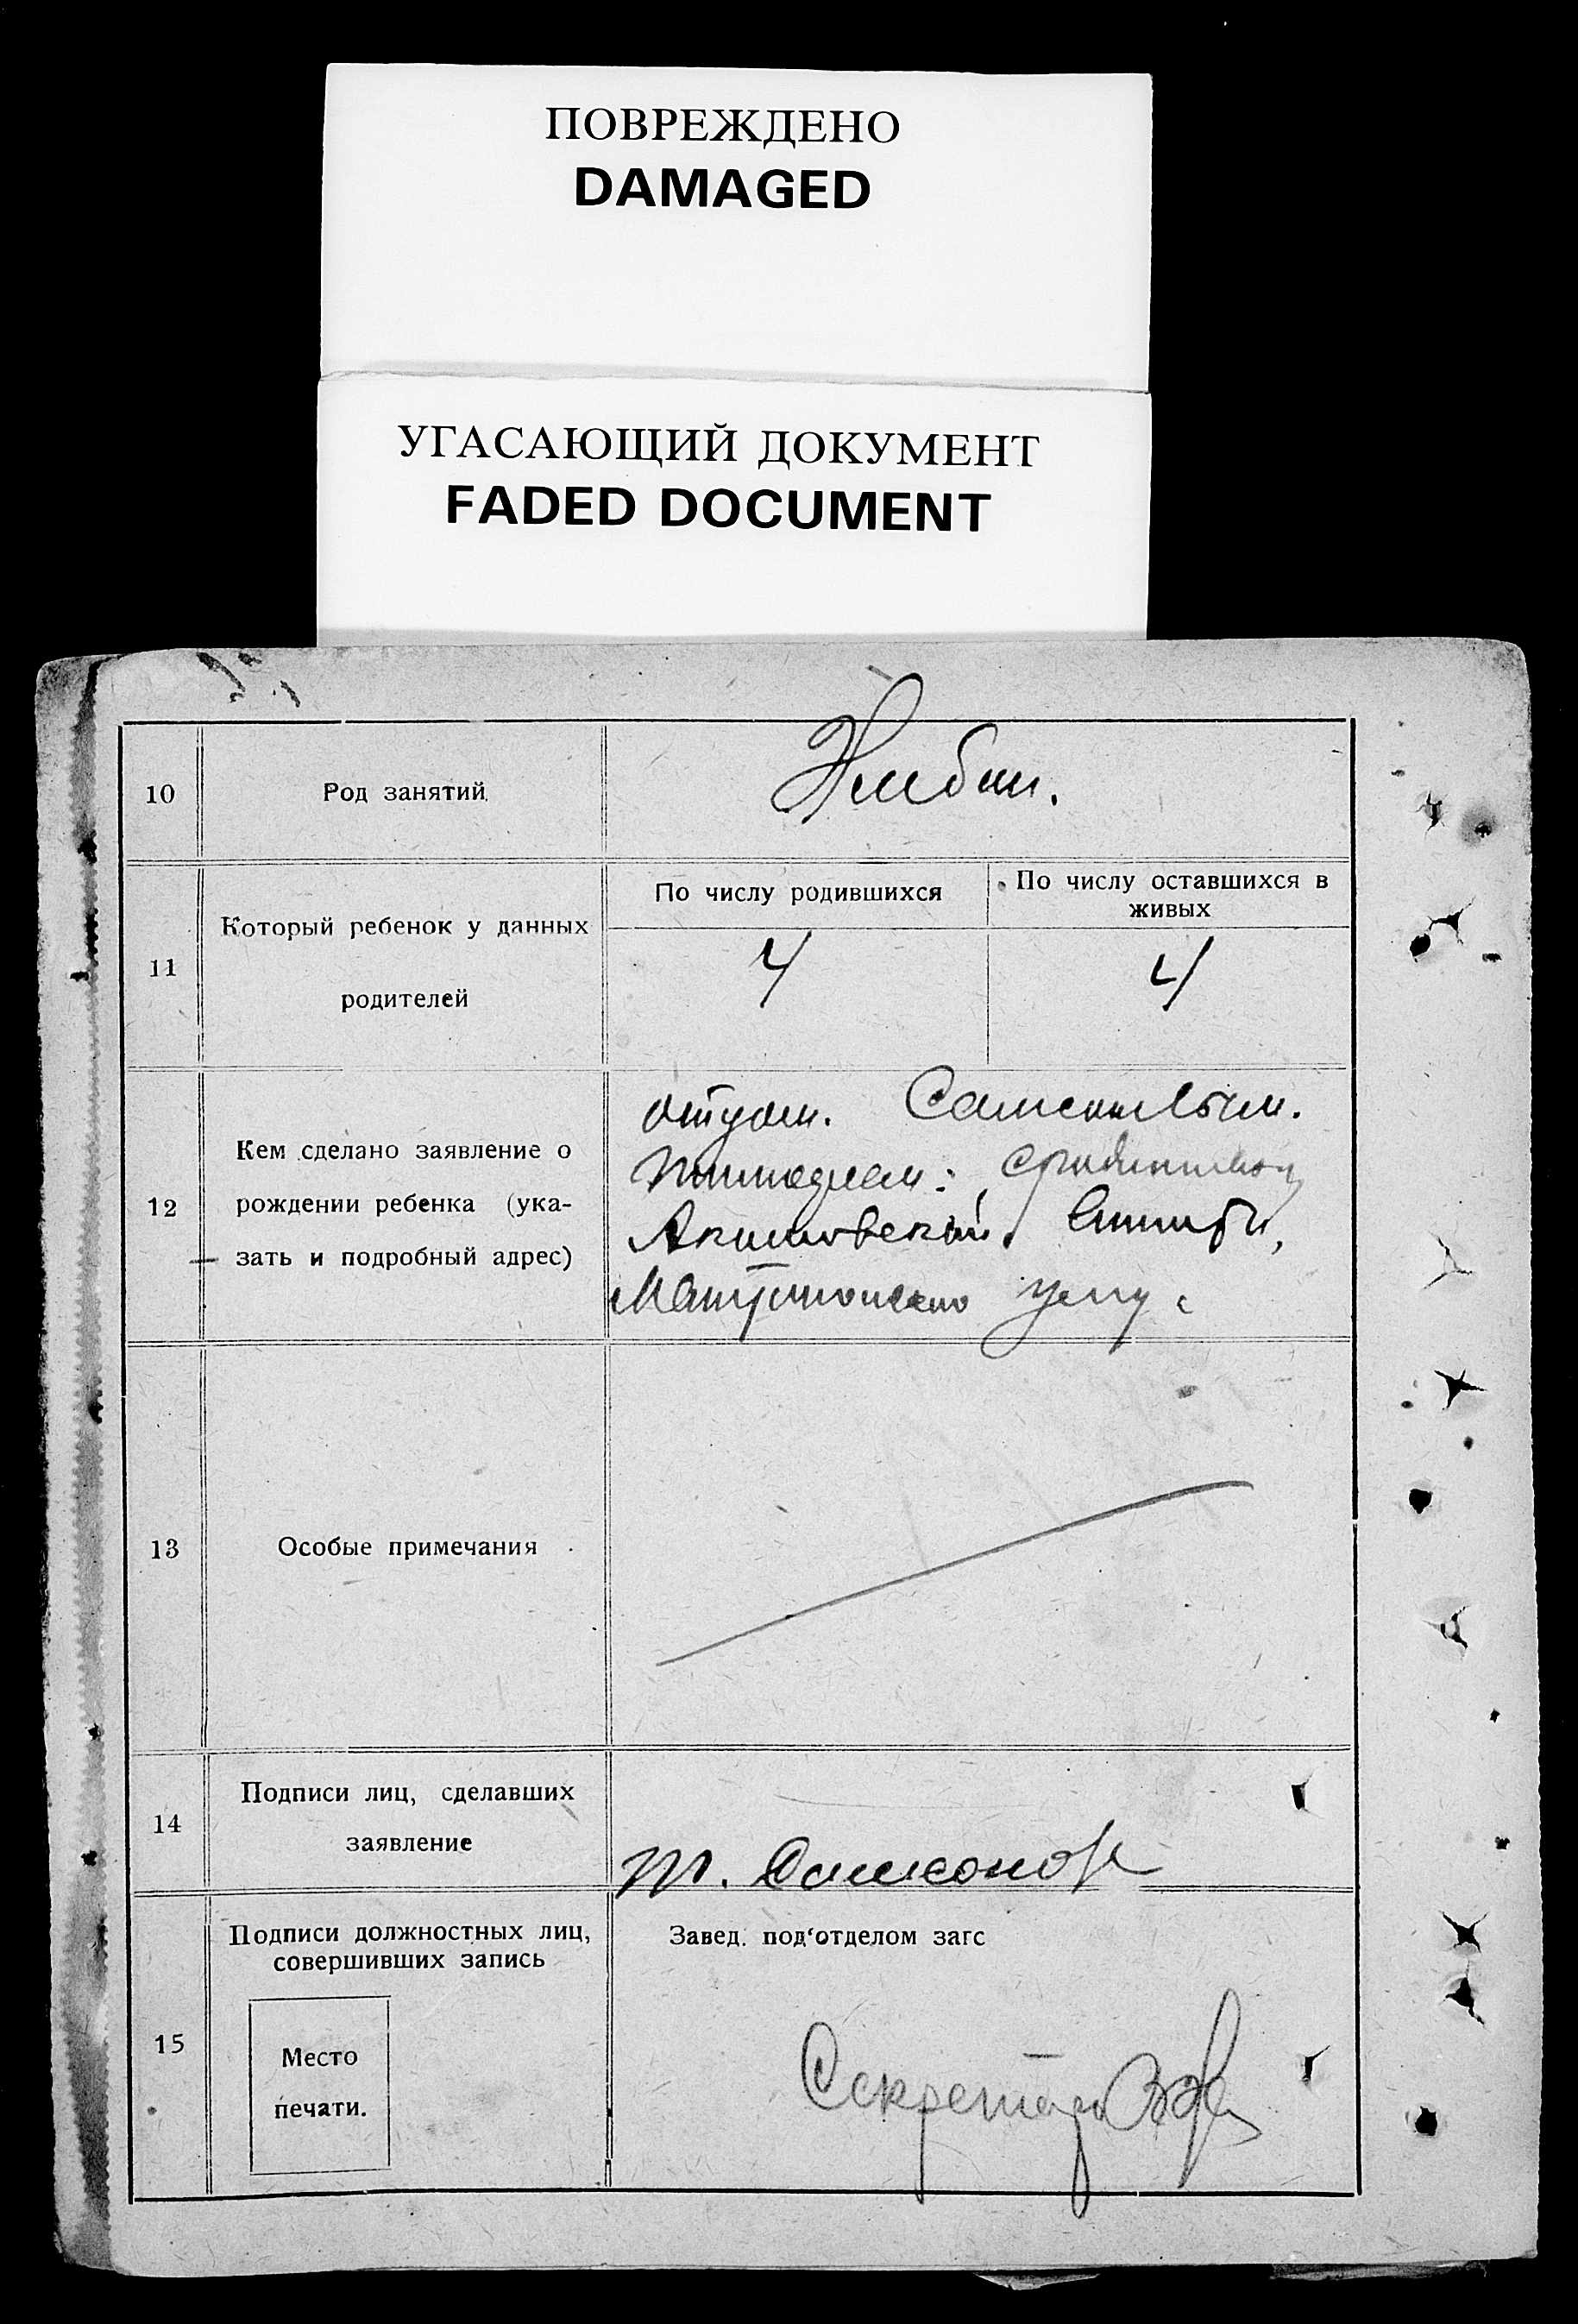 ПОВРЕЖДЕНО
DAMAGED
УГАСАЮЩИЙ ДОКУМЕНТ
FADED DOCUMENT
10
Род занятий
11
Который ребенок у данных
родителей
По числу родившихся
4
По числу оставшихся в
живых
4
12
Кем сделано заявление о
рождении ребенка (ука-
зать и подробный адрес)
отцом.
13
Особые примечания
14
Подписи лиц, сделавших
заявление
15
Подписи должностных лиц,
совершивших запись
Место
печати.
Завед. под‘отделом загс
Секретарь